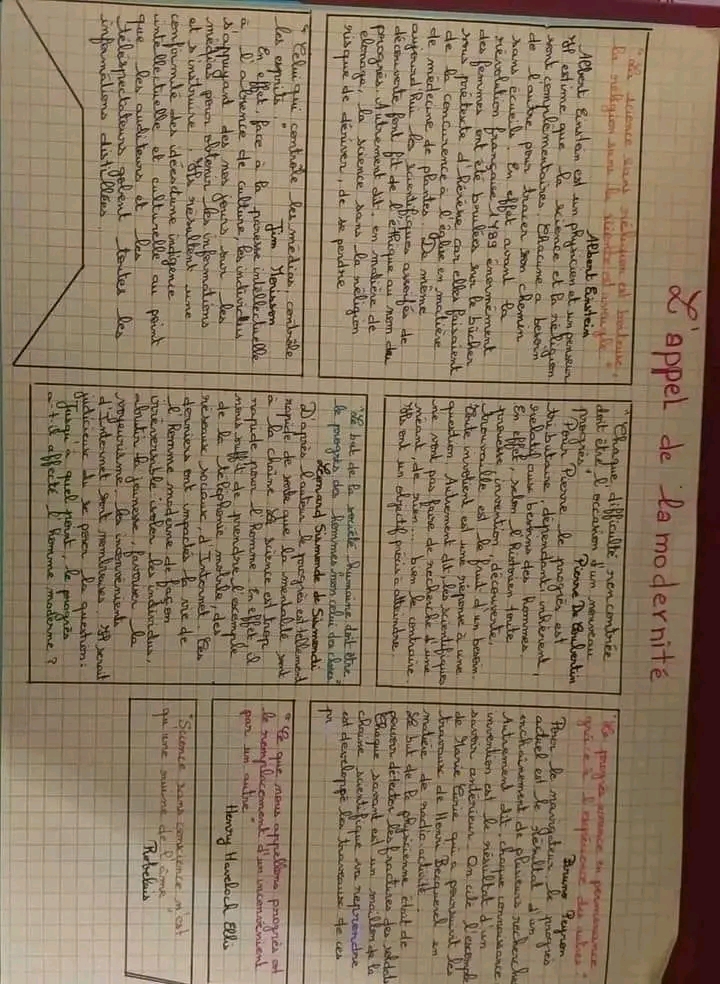 L'appel de la modernité
"La science sans religion est boiteuse,
la religion sans la science est aveugle"
Albert Einstein
Albert Einstein est un physicien et un penseur
Il estime que la science et la religion
sont complémentaires. Chacune a besoin
de l'autre pour tracer son chemin
sans écueils. En effet avant la
révolution française 1789 énormément
des femmes ont été brulées sur le bûcher
sous prétexte d'hérésie car elles faisaient
de la concurence à l'église en matière
de médecine de plantes. De même
aujourd'hui les scientifiques assoifés de
découverte font fi de l'éthique au nom du
progrès. Autrement dit, en matière de
clonage, la science sans la réligion
risque de dériver, de se perdre
"Celui qui contrôle les médias contrôle
les esprits"
Jim Morisson
En effet face à la paresse intellectuelle
à l'absence de culture, les individus
s'appuyant des nos jours sur les
médias pour obtenir les informations
et s'instruire. Ils résultent une
conformité des idées d'une indigence
intellectuelle et culturelle au point
que les auditeurs et les
téléspectateurs gobent toutes les
informations distillées
"Chaque difficulté rencontrée
doit être l'occasion d'un nouveau
progrès."
Pierre De Coubertin
Pour Pierre le progrès est
tributaire, dépendant, inhérent,
relatif aux besoins des hommes.
En effet, selon l'historien toute
prouesse, invention, découverte,
trouvaille est le fruit d'un besoin.
Toute invotient est une réponse à une
question. Autrement dit, les scientifiques
ne vont pas faire de recherche d'une
néant de rien... bien le contraire
Ils ont un objectif précis à atteindre.
"Le but de la société humaine doit être
le progrès des hommes non celui des choses"
Léonard Sismonde de Sismondi
D'après l'auteur le progrès est tellement
rapide de sorte que la mentalité soit
à la chaîne La science est trop
rapide pour l'homme. En effet il
nous suffit de prendre l'exemple
de la téléphonie mobile, des
réseaux sociaux, d'Internet. Ces
derniers ont impactés la vie de
l'homme moderne de façon
irréversible isoler les individus,
abrutir la jeunesse, favoriser la
voyeurisme. les inconvénients
d'Internet sont nombreuses. Il serait
judicieux du se poser la question:
Jusqu'à quel point, le progrès
a-t-il affecté l'homme moderne?
"Le progrès avance en permanence
grâce à l'expérience des autres"
Bruno Peyron
Pour le navigateur le progrès
actuel est le résultat d'un
enchaînement de plusieurs recherches
Autrement dit, chaque connaissance
invention est le résultat d'un
savoir antérieur. On cite l'exemple
de Marie Curie qui a poursuivi les
travaux de Henri Becquerel en
matière de radio activité.
Le but de la physicienne était de
pouvoir détecter les fractures des soldats
Chaque savant est un maillon de la
chaine scientifique va reprendre
est developpé les travaux de ces
pr
"Ce que nous appellons progrès est
le remplacement d'un inconvénient
par un autre"
Henry Havelock Ellis
"Science sans conscience n'est
qu'une ruine de l'âme"
Rebelais